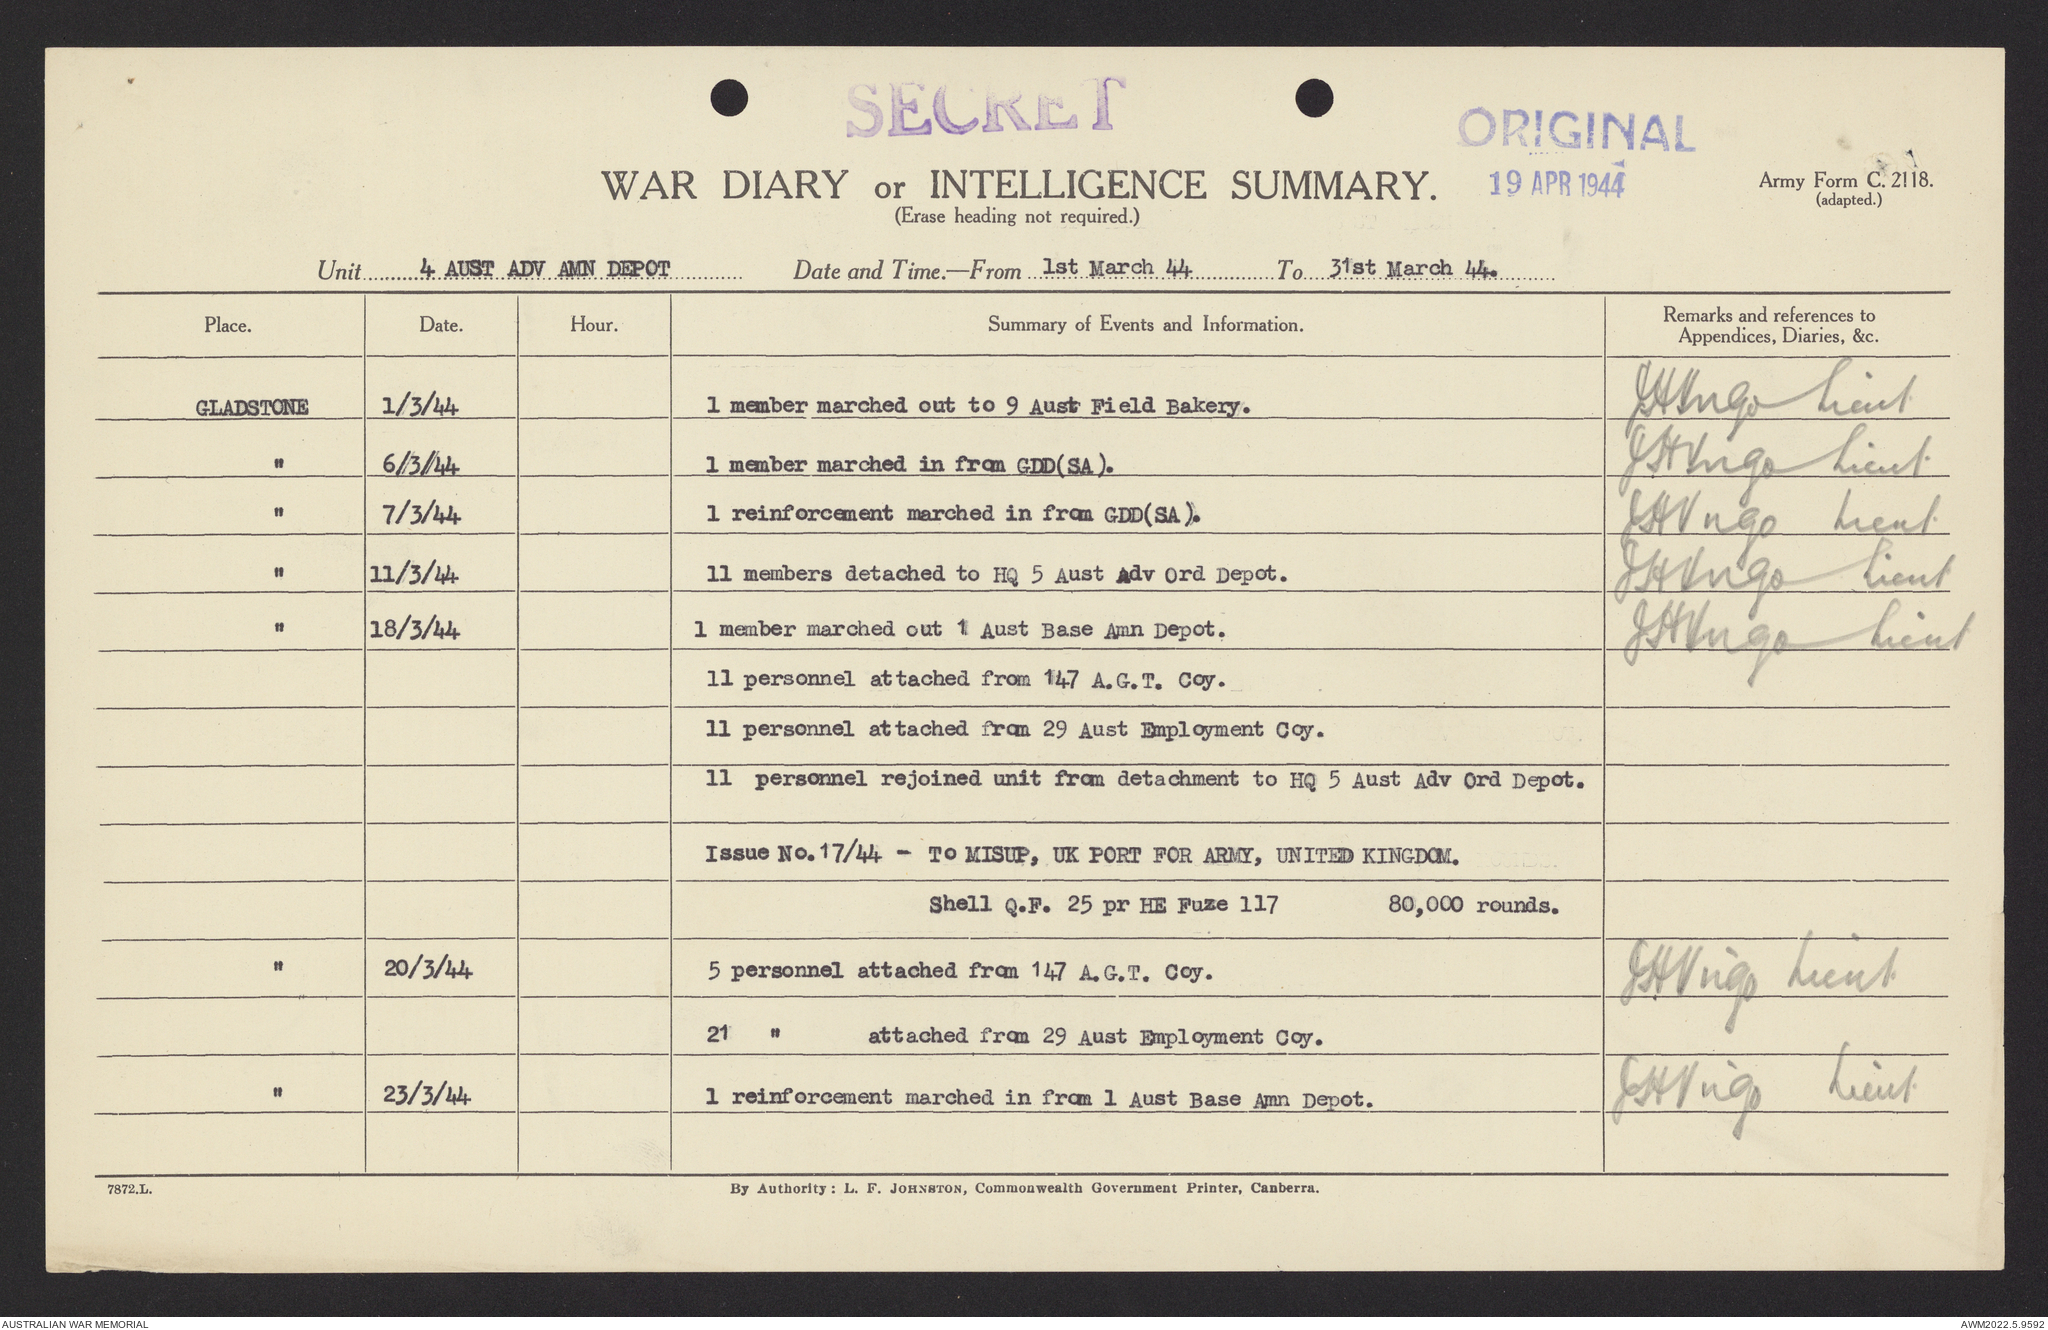 SECRET
ORIGINAL
19 APR 1944
WAR DIARY or INTELLIGENCE SUMMARY.
Army Form C. 2118.
(adapted.)
(Erase heading not required.)
Unit 4 AUST ADV AMN DEPOT Date and Time.—From 1st March 44 To 31st March 44.
Place. Date. Hour. Summary of Events and Information. Remarks and references to
Appendices, Diaries, &c.
GLADSTONE 1/3/44 1 member marched out to 9 Aust Field Bakery. Lieut
" 6/3/44 1 member marched in from GDD(SA). Lieut
" 7/3/44 1 reinforcement marched in from GDD(SA). Lieut
" 11/3/44 11 members detached to HQ 5 Aust Adv Ord Depot. Lieut
" 18/3/44 1 member marched out 1 Aust Base Amn Depot. Lieut
11 personnel attached from 147 A.G.T. Coy.
11 personnel attached from 29 Aust Employment Coy.
11 personnel rejoined unit from detachment to HQ 5 Aust Adv Ord Depot.
Issue No.17/44 - To MISUP, UK PORT FOR ARMY, UNITED KINGDOM.
Shell Q.F. 25 pr HE Fuze 117 80,000 rounds.
" 20/3/44 5 personnel attached from 147 A.G.T. Coy. Lieut
21 " attached from 29 Aust Employment Coy.
" 23/3/44 1 reinforcement marched in from 1 Aust Base Amn Depot. Lieut
7872.L.
By Authority: L. F. JOHNSTON, Commonwealth Government Printer, Canberra.
AUSTRALIAN WAR MEMORIAL
AWM2022.5.9592